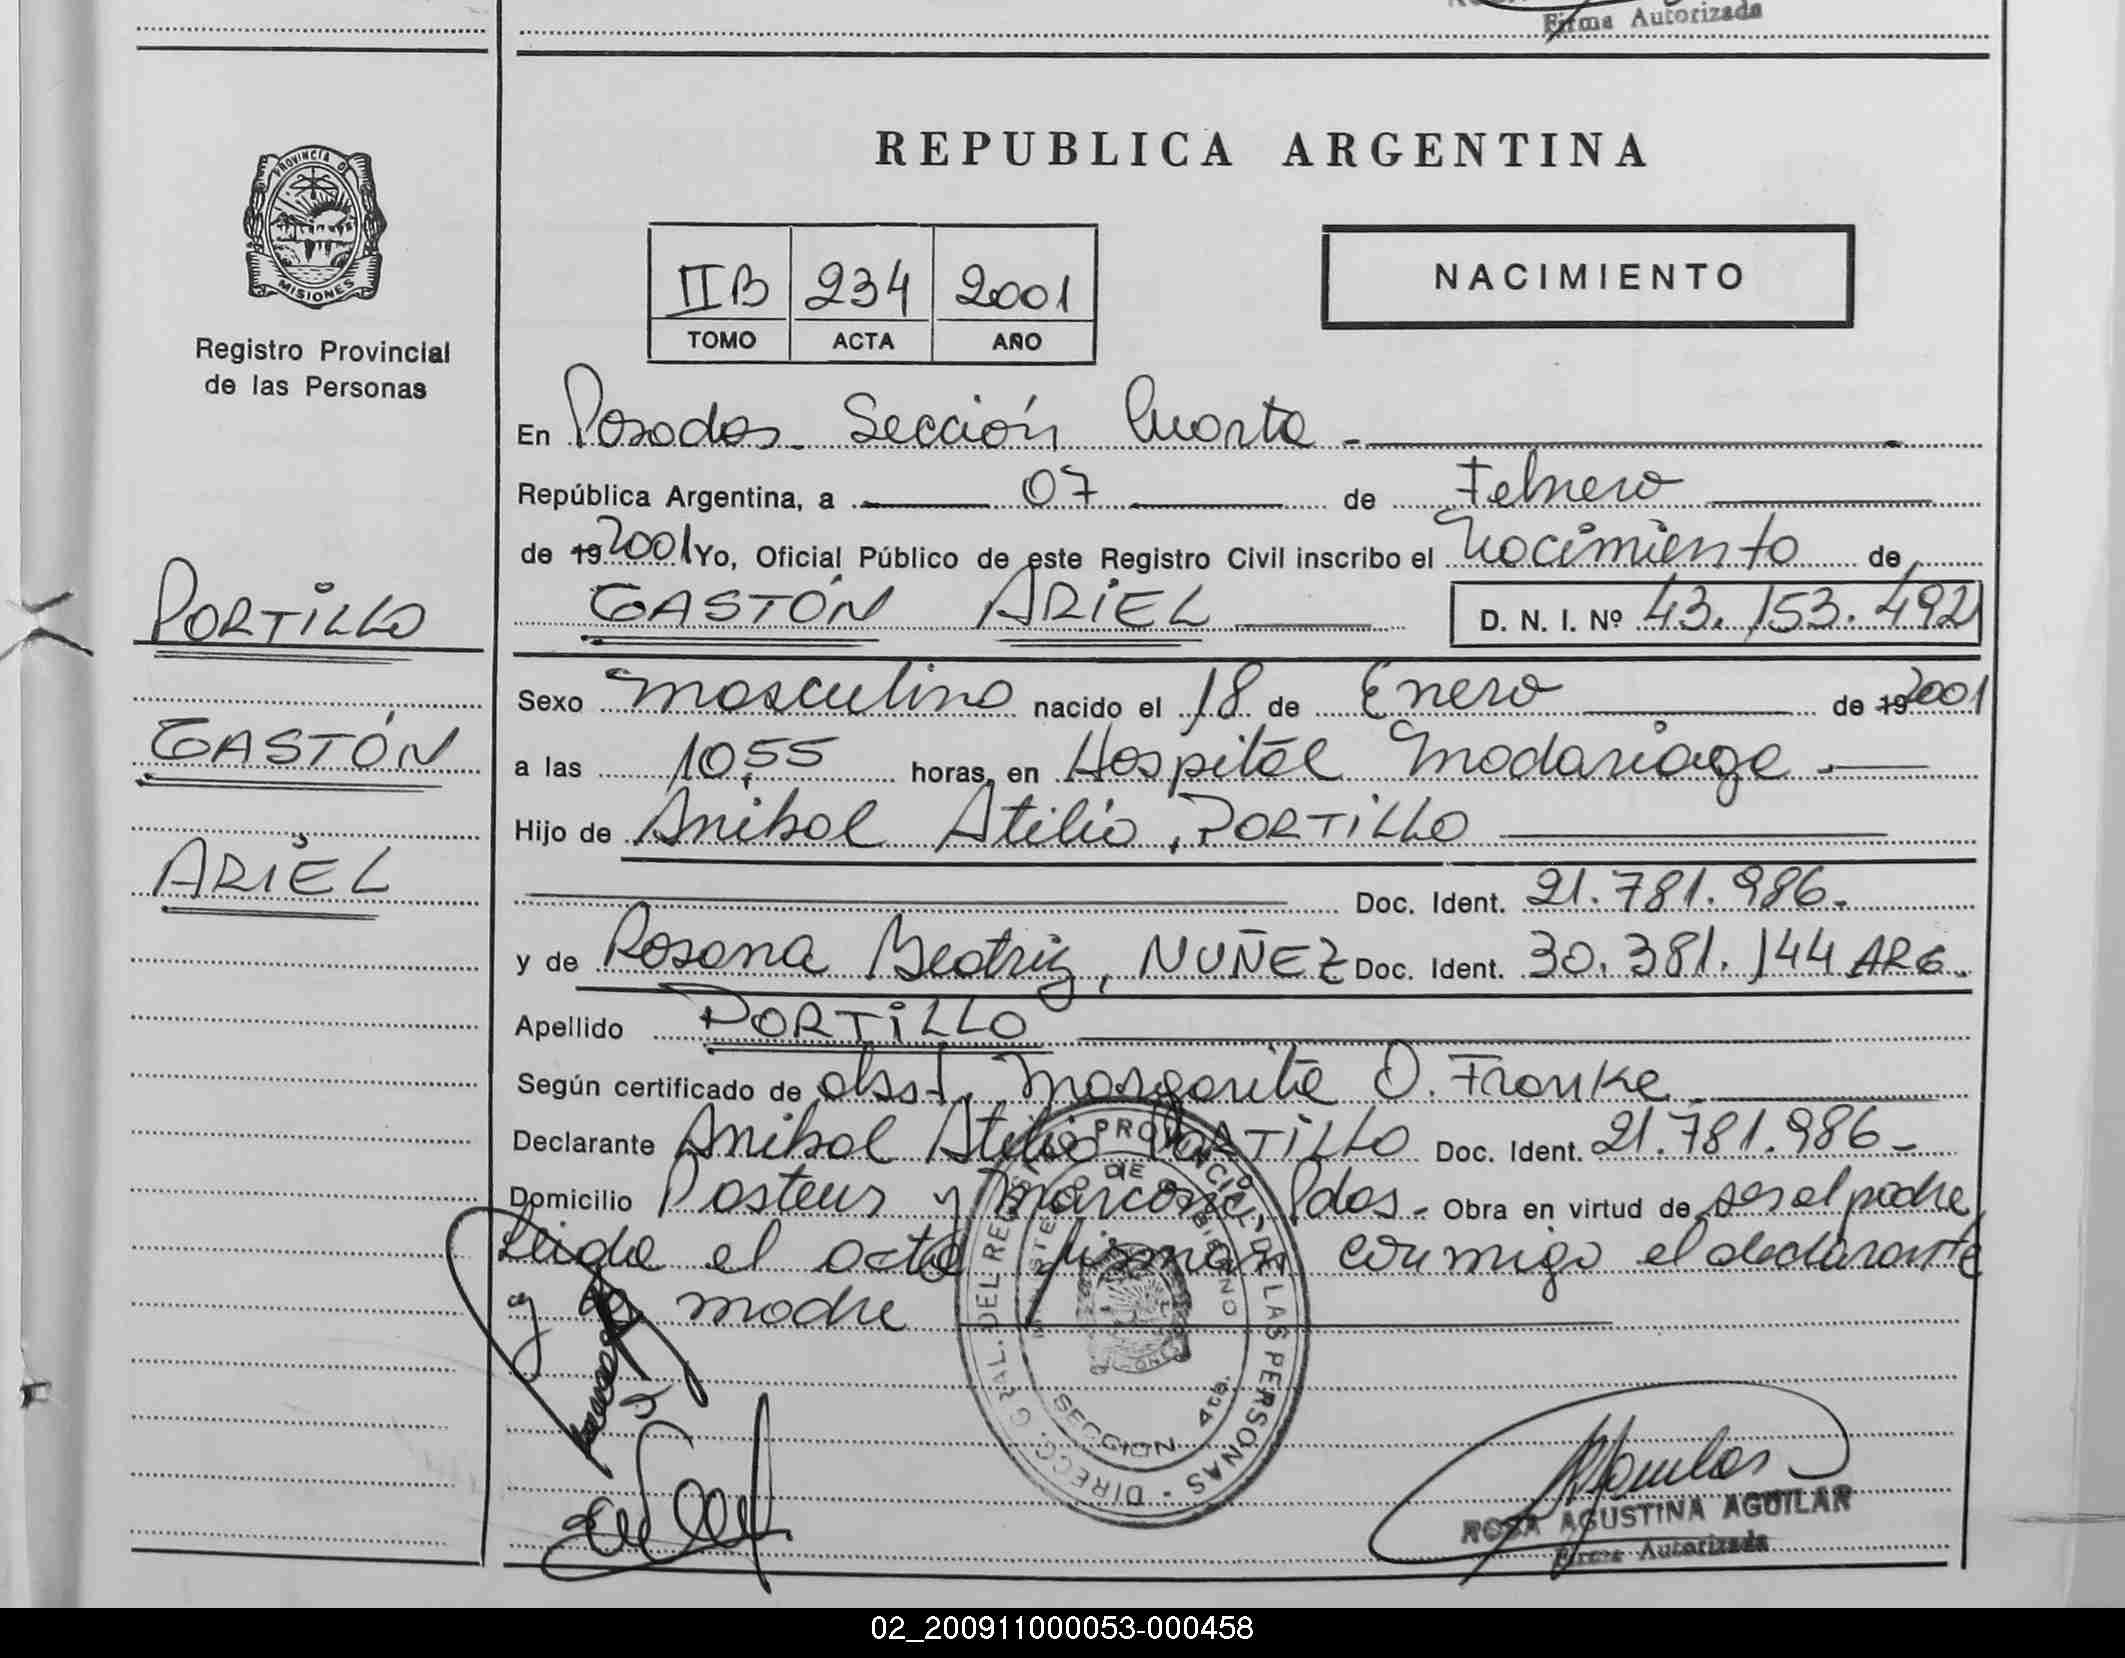 Firma Autorizada
PROVINCIA D
MISIONES
Registro Provincial
de las Personas
PORTILLO
GASTÓN
ARIEL
REPUBLICA ARGENTINA
IIB 234 2001
TOMO ACTA AÑO
NACIMIENTO
En Posadas. Sección Cuarta -
República Argentina, a 07 de Febrero
de 19 2001 Yo, Oficial Público de este Registro Civil inscribo el Nacimiento de
GASTÓN ARIEL D. N. I. Nº 43.153.492
Sexo masculino nacido el 18 de Enero de 19 2001
a las 10,55 horas, en Hospital Madariaga
Hijo de Anibal Atilio, PORTILLO
Doc. Ident. 21.781.986.
y de Rosana Beatriz, NUÑEZ Doc. Ident. 30.381.144 ARG.
Apellido PORTILLO
Según certificado de obst. Margarita O. Franke
Declarante Anibal Atilio PORTILLO Doc. Ident. 21.781.986-
Domicilio Pasteur y Marconi, Pdas. Obra en virtud de ser el padre,
Leida el acta firman conmigo el declarante
y la madre
DIRECC. GRAL. DEL REGISTRO PROVINCIAL DE LAS PERSONAS -
MINISTERIO DE GOBIERNO
SECCION 4ta.
ROSA AGUSTINA AGUILAR
Firma Autorizada
02_200911000053-000458